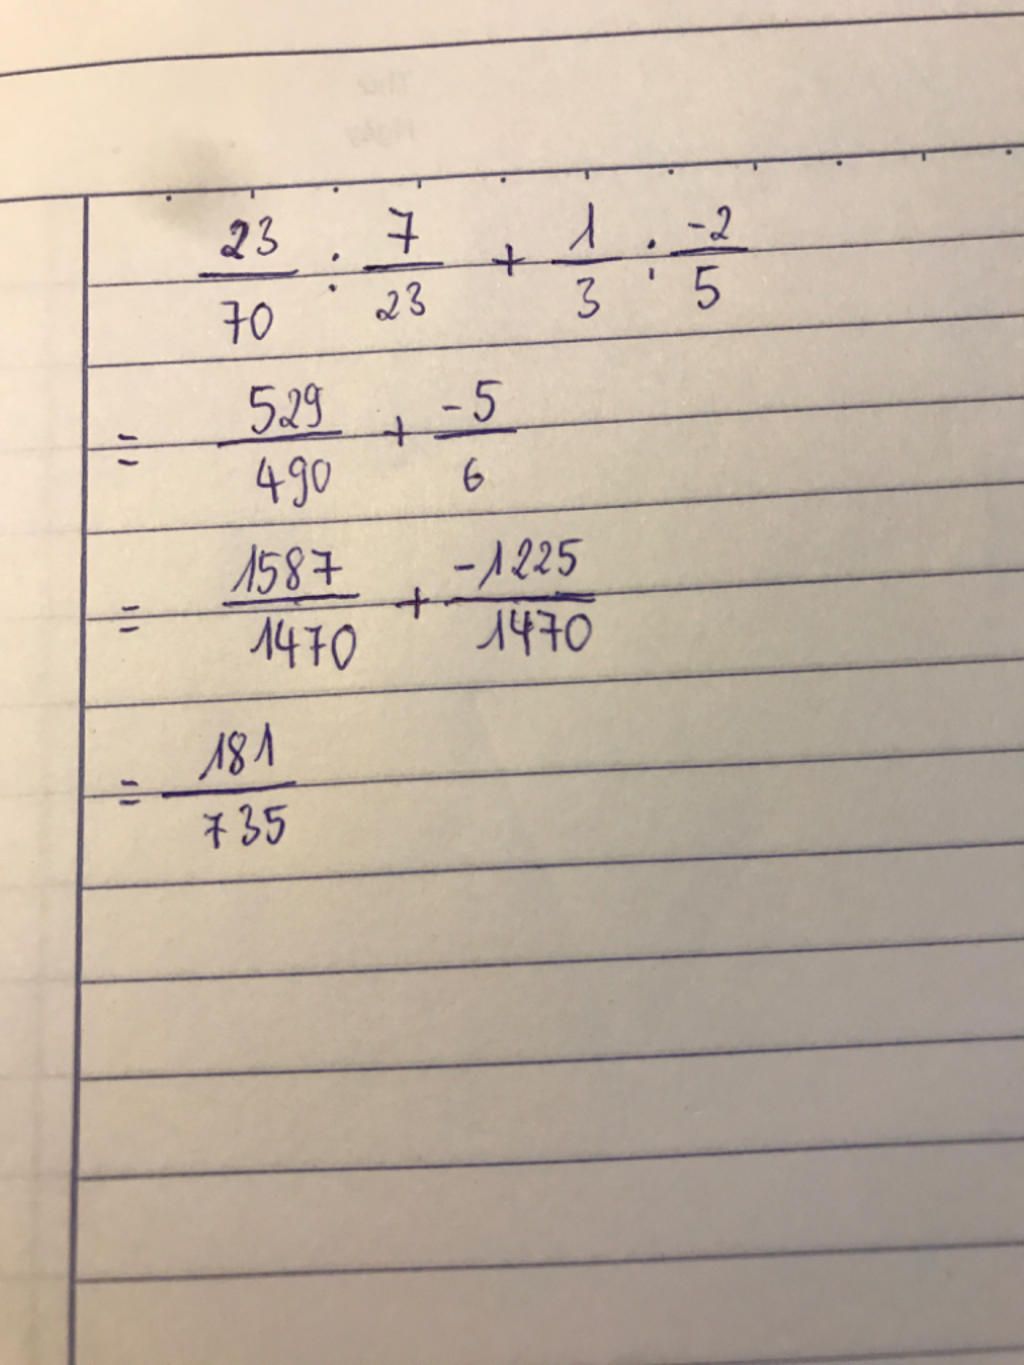 23/70 : 7/23 + 1/3 : -2/5
= 529/490 + -5/6
= 1587/1470 + -1225/1470
= 181/735